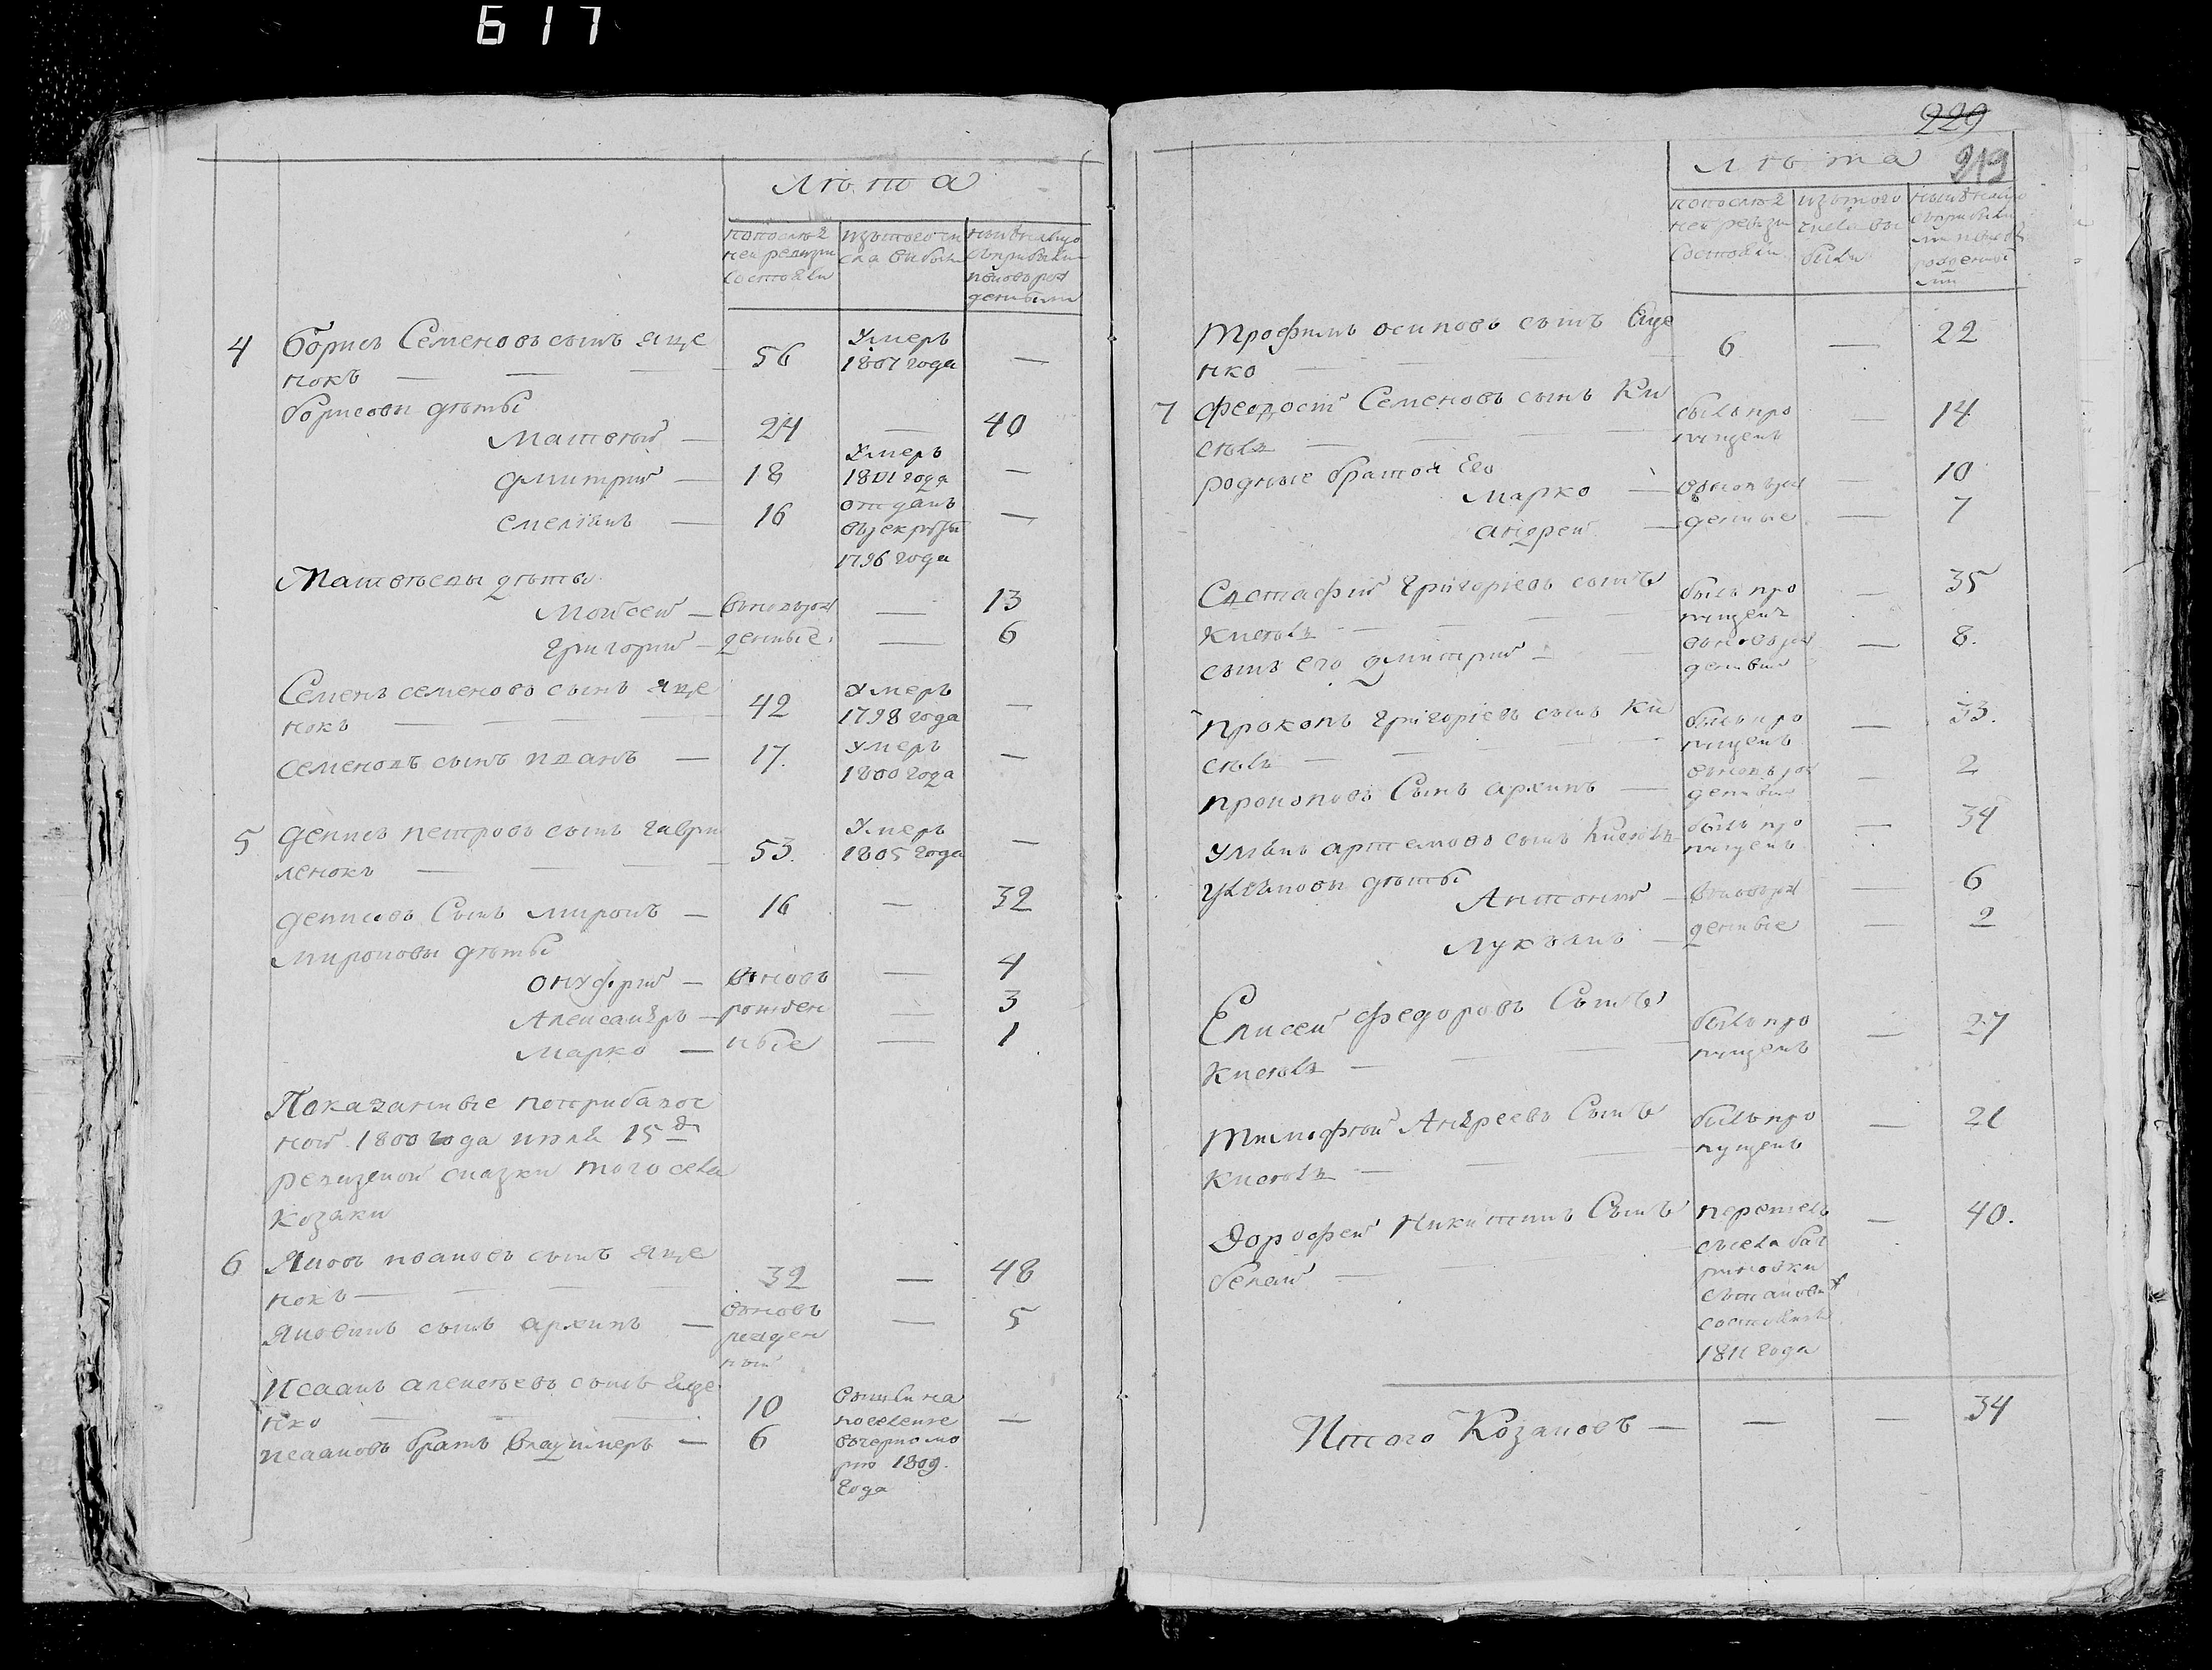 617
Лѣта
по послѣд
ней ревизіи
состояли
изъ того чи
сла выбыло
нынѣ налицо
съ прибылы
ми и новорож
денными
4 Борисъ Семеновъ сынъ Яще
нокъ — 56 Умеръ
1807 года —
Борисовы дѣты
Матвѣй — 24 — 40
Дмитрий — 18 Умеръ
1801 года —
Емелянъ — 16 отданъ
въ рекруты —
1796 года
Матвѣевы дѣты
Мойсей — вновь рож — 13
Григорий — денные — 6
Семенъ Семеновъ сынъ Яще
нокъ — 42 Умеръ
1798 года —
Семеновъ сынъ Иванъ — 17. Умеръ
1800 года —
5 Денисъ Петровъ сынъ Гаври
ленокъ — 53. Умеръ
1805 года —
Денисовъ Сынъ Миронъ — 16 — 32
Мироновы дѣты
Онуфрий — вновь — 4
Александръ — рожден — 3
Марко — ные — 1
Показанные по
ной 1800 года июля 15 дн
ревизской сказки того села
Козаки
6 Яковъ Ивановъ сынъ Яще
нокъ — 32 — 48
Яковинъ сынъ Архипъ — вновь
рожден
ный — 5
Исаакъ Алексѣевъ сынъ Яще
нко — 10
Исааковъ братъ Владимеръ — 6
вышли на
поселение
въ черномо
рию 1809.
года —
229
219
Лѣта
по послѣд
ней ревизи
состояли
изъ того
числа вы
были
нынѣ налицо
съ прибылы
ми и новь
рожденны
ми
Трофимъ Осиповъ сынъ Еще
нко — 6 — 22
7 Феодосий Семеновъ сынъ Ки
сѣль — былъ про
пущенъ — 14
родные братья Его
Марко — вновь рож — 10
Андрей — денные — 7
Евстафий Григориевъ сынъ
Кисѣль — былъ про
пущенъ — 35
сынъ его Дмитрий — вновь рож
денный — 8.
Прокопъ Григориевъ сынъ Ки
сѣль — былъ про
пущенъ — 33.
Прокоповъ Сынъ Архипъ — вновь рож
денный — 2
Улянъ Артемовъ сынъ Кисѣль былъ про
пущенъ — 34
Уляновы дѣты
Антоний — вновь рож — 6
Лукьянъ — денные — 2
Елисей Федоровъ Сынъ
Кисѣль — былъ про
пущенъ — 27
Тимофей Андреевъ Сынъ
Кисѣль — былъ про
пущенъ — 21
Дорофей Никитинъ Сынъ
перешелъ
съ села Бат
1811 года — 40.
Итого Козаковъ — — — 34